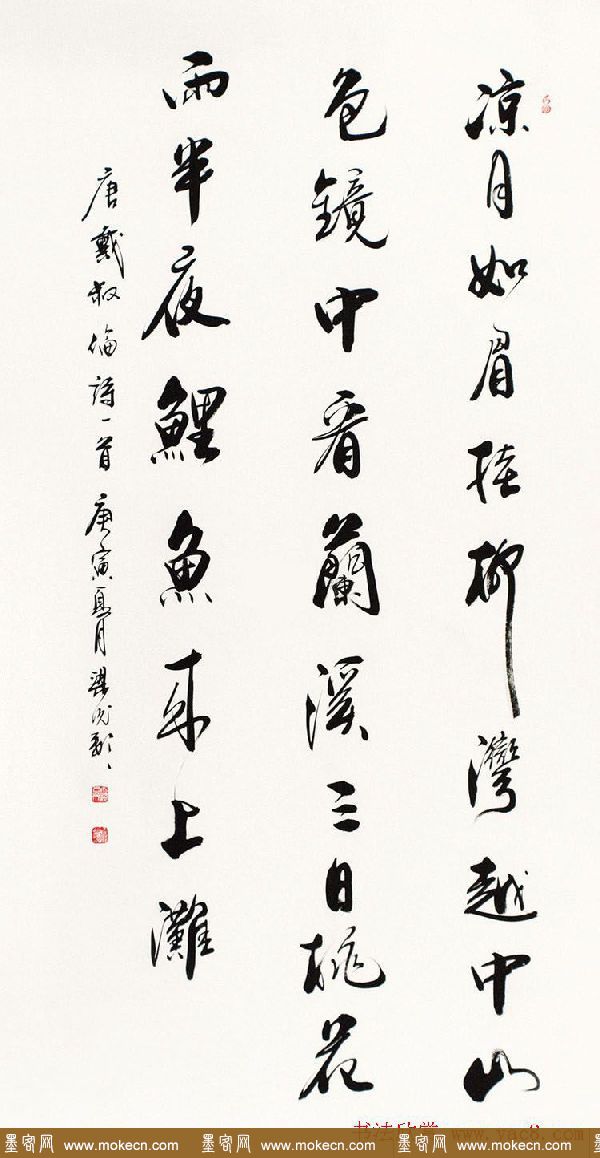 凉月如眉挂柳灣越中山
色鏡中看蘭溪三日桃花
雨半夜鯉魚来上灘
唐戴叔倫詩一首 庚寅夏月
书法欣赏 www.yac8.com
墨客网 www.mokecn.com 墨客网 www.mokecn.com 墨客网 www.mokecn.com